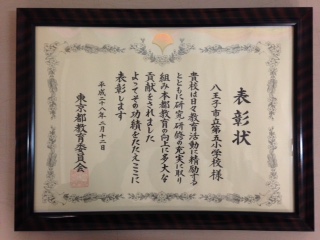 表彰状
八王子市立第五小学校 様
貴校は日々教育活動に精励する
とともに研究・研修の充実に取り
組み本都教育の向上に多大な
貢献をされました
よってその功績をたたえここに
表彰します
平成二十八年二月十二日
東京都教育委員会